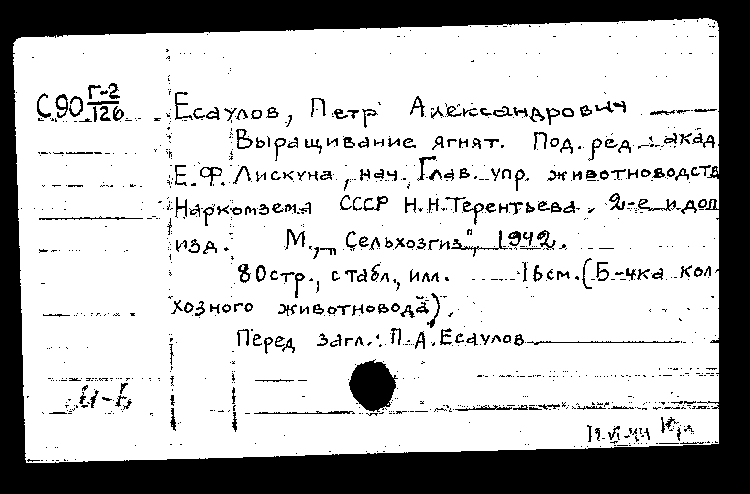 С90 Г-2/126
Есаулов, Петр Александрович
Выращивание ягнят. Под. ред. акад.
Е.Ф. Лискуна, нач. Глав. упр. животноводств
Наркомзема СССР Н.Н. Терентьева. 2-е и доп
изд. М., „Сельхозгиз", 1942.
80 стр., с табл., илл. 16 см. (Б-чка кол-
хозного животновода).
Перед загл.: П.А. Есаулов